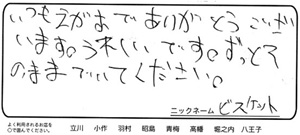 いつもえがおでありがとうござい
います。うれしいです。ずっとそ
のままでいてください。
ニックネーム ビスケット
よく利用されるお店を
○で囲んでください。
立川 小作 羽村 昭島 青梅 高幡 堀之内 八王子